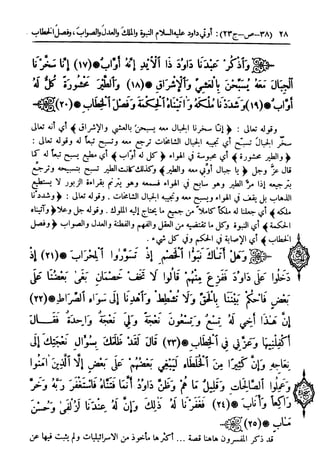 ٢٨ (٣٨-ص-ج٢٣) : أوتي داود عليه السلام النبوة والملك والعدل والصواب، وفصل الخطاب
وَاذْكُرْ عَبْدَنَا دَاوُدَ ذَا الْأَيْدِ إِنَّهُ أَوَّابٌ (١٧) إِنَّا سَخَّرْنَا
الْجِبَالَ مَعَهُ يُسَبِّحْنَ بِالْعَشِيِّ وَالْإِشْرَاقِ (١٨) وَالطَّيْرَ مَحْشُورَةً كُلٌّ لَهُ
أَوَّابٌ (١٩) وَشَدَدْنَا مُلْكَهُ وَآتَيْنَاهُ الْحِكْمَةَ وَفَصْلَ الْخِطَابِ (٢٠)
وقوله تعالى : ﴿ إنا سخرنا الجبال معه يسبحن بالعشي والإشراق ﴾ أي أنه تعالى
سخّر الجبال تسبح أي تجيبه الجبال الشامخات ترجع معه وتسبح تبعاً له وقوله تعالى
﴿ والطير محشورة ﴾ أي محبوسة في الهواء ﴿ كل له أواب ﴾ أي مطيع يسبح تبعاً له كما
قال عز وجل ﴿ يا جبال أوبي معه والطير ﴾ وكذلك كانت الطير تسبح بتسبيحه وترجع
بترجيعه إذا مرّ الطير وهو سابح في الهواء فسمعه وهو يترنم بقراءة الزبور لا يستطيع
الذهاب بل يقف في الهواء ويسبح معه وتجيبه الجبال الشامخات . وقوله تعالى : ﴿ وشددنا
ملكه ﴾ أي جعلنا له ملكاً كاملاً من جميع ما يحتاج إليه الملوك . وقوله جل وعلا ﴿ وآتيناه
الحكمة ﴾ أي النبوة وكل ما تقتضيه من العقل والفهم والفطنة والعدل والصواب ﴿ وفصل
الخطاب ﴾ أي الإصابة في الحكم وفي كل شيء .
وَهَلْ أَتَاكَ نَبَأُ الْخَصْمِ إِذْ تَسَوَّرُوا الْمِحْرَابَ (٢١) إِذْ
دَخَلُوا عَلَى دَاوُدَ فَفَزِعَ مِنْهُمْ قَالُوا لَا تَخَفْ خَصْمَانِ بَغَى بَعْضُنَا عَلَى
بَعْضٍ فَاحْكُمْ بَيْنَنَا بِالْحَقِّ وَلَا تُشْطِطْ وَاهْدِنَا إِلَى سَوَاءِ الصِّرَاطِ (٢٢)
إِنَّ هَذَا أَخِي لَهُ تِسْعٌ وَتِسْعُونَ نَعْجَةً وَلِيَ نَعْجَةٌ وَاحِدَةٌ فَقَالَ
أَكْفِلْنِيهَا وَعَزَّنِي فِي الْخِطَابِ (٢٣) قَالَ لَقَدْ ظَلَمَكَ بِسُؤَالِ نَعْجَتِكَ إِلَى
نِعَاجِهِ وَإِنَّ كَثِيرًا مِنَ الْخُلَطَاءِ لَيَبْغِي بَعْضُهُمْ عَلَى بَعْضٍ إِلَّا الَّذِينَ آمَنُوا
وَعَمِلُوا الصَّالِحَاتِ وَقَلِيلٌ مَا هُمْ وَظَنَّ دَاوُدُ أَنَّمَا فَتَنَّاهُ فَاسْتَغْفَرَ رَبَّهُ وَخَرَّ
رَاكِعًا وَأَنَابَ (٢٤) فَغَفَرْنَا لَهُ ذَلِكَ وَإِنَّ لَهُ عِنْدَنَا لَزُلْفَى وَحُسْنَ
مَآبٍ (٢٥)
قد ذكر المفسرون هاهنا قصة ... أكثرها مأخوذ من الاسرائيليات ولم يثبت فيها عن